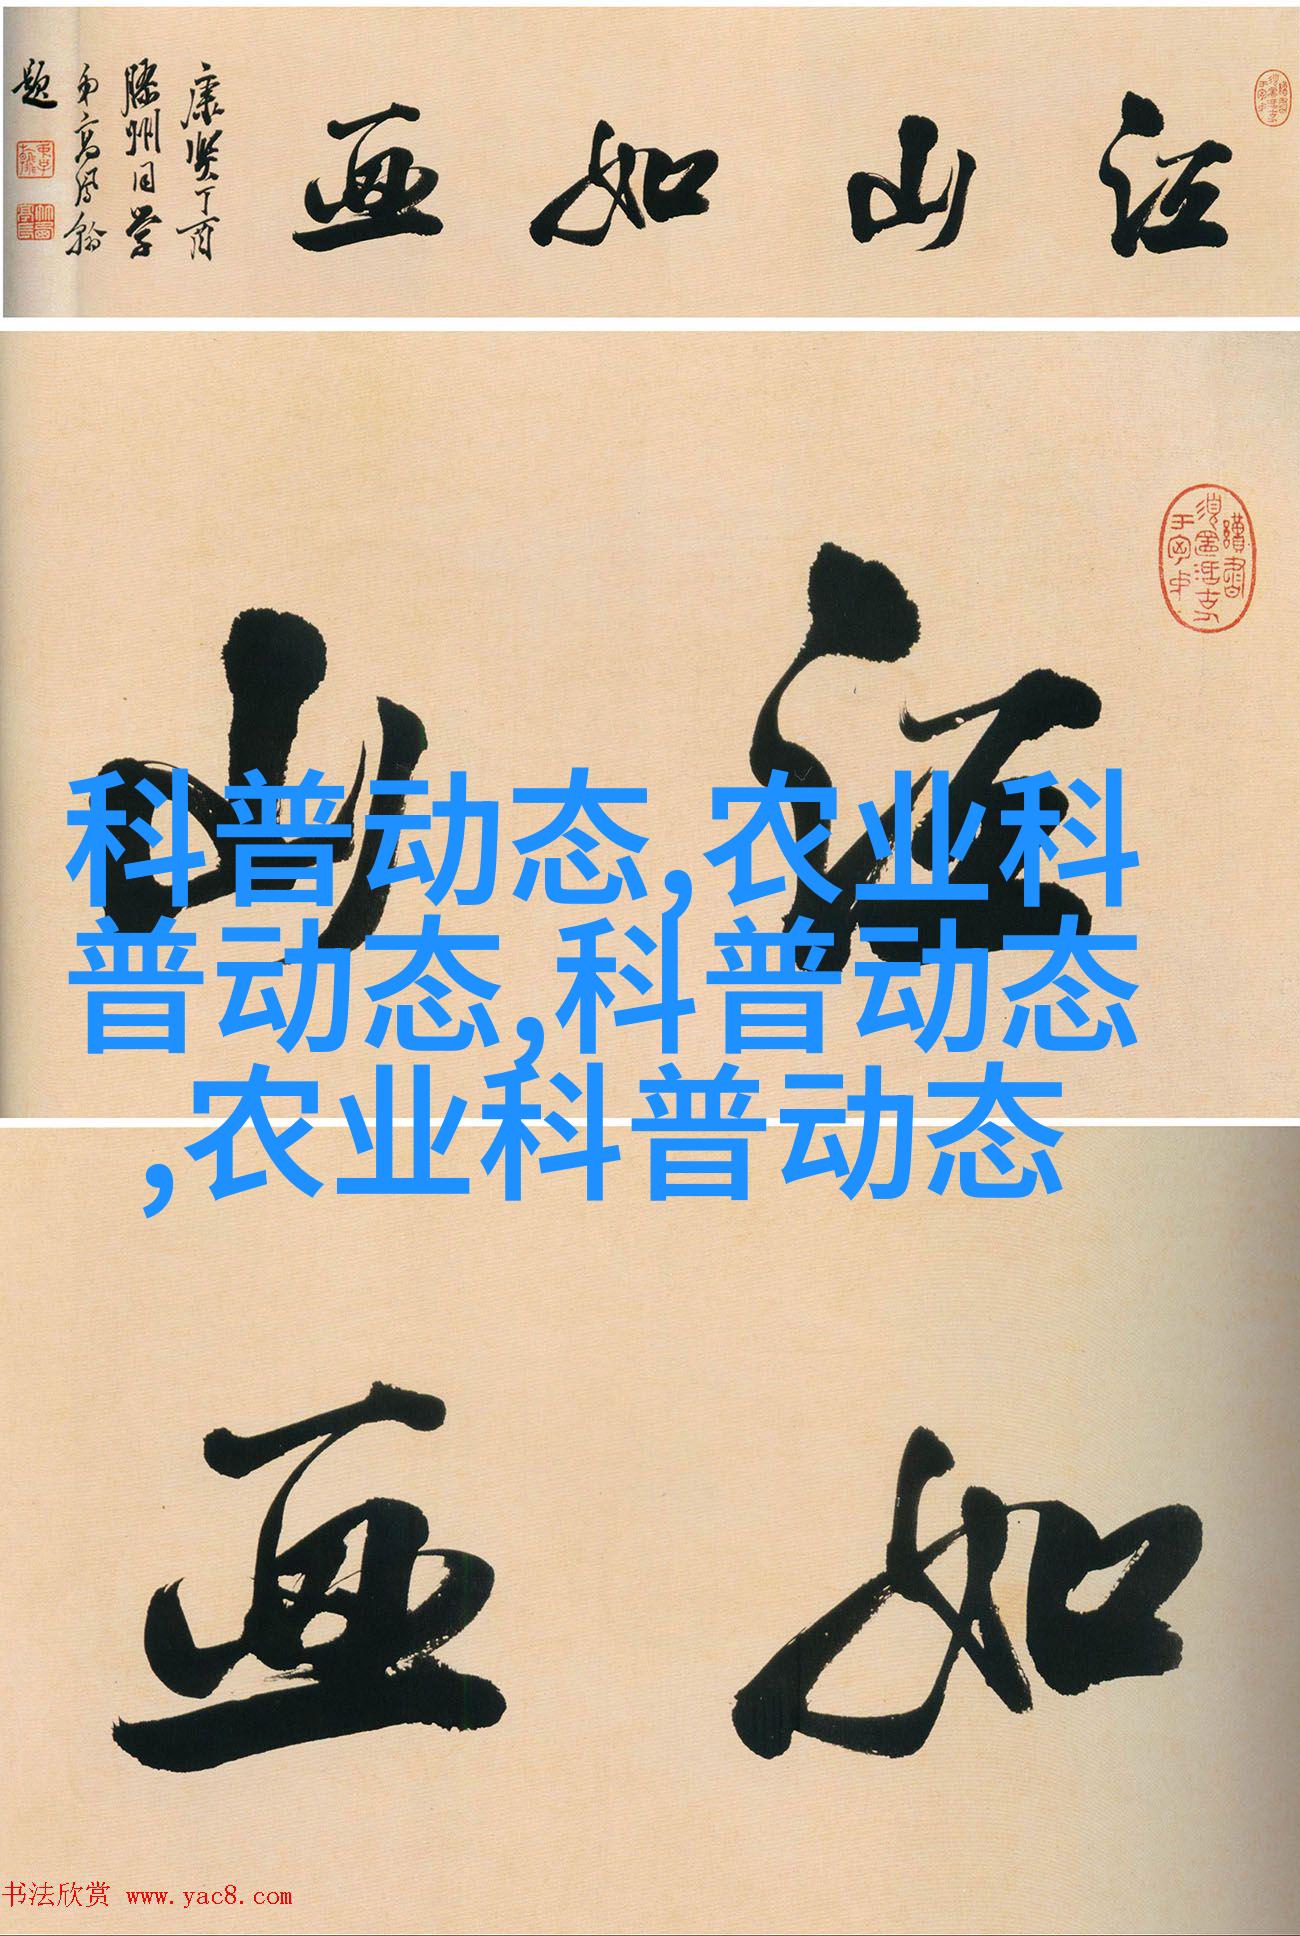 江山如画
康熙丁酉
滕州同学
弟高凤翰
题
江山
科普动态,农业科
普动态,科普动态
,农业科普动态
如画
书法欣赏 www.yac8.com